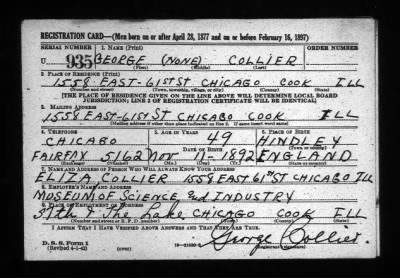 REGISTRATION CARD—(Men born on or after April 28, 1877 and on or before February 16, 1897)
SERIAL NUMBER 1. NAME (Print) ORDER NUMBER
U 935 GEORGE (NONE) COLLIER
(First) (Middle) (Last)
2. PLACE OF RESIDENCE (Print)
1558 EAST-61ST ST CHICAGO COOK ILL
(Number and street) (Town, township, village, or city) (County) (State)
[THE PLACE OF RESIDENCE GIVEN ON THE LINE ABOVE WILL DETERMINE LOCAL BOARD
JURISDICTION; LINE 2 OF REGISTRATION CERTIFICATE WILL BE IDENTICAL]
3. MAILING ADDRESS
1558 EAST-61ST ST CHICAGO COOK ILL
[Mailing address if other than place indicated on line 2. If same insert word same]
4. TELEPHONE 5. AGE IN YEARS 6. PLACE OF BIRTH
CHICAGO 49 HINDLEY
DATE OF BIRTH (Town or county)
FAIRFAX 5162 NOV 11- 1892 ENGLAND
(Exchange) (Number) (Mo.) (Day) (Yr.) (State or country)
7. NAME AND ADDRESS OF PERSON WHO WILL ALWAYS KNOW YOUR ADDRESS
ELIZA COLLIER 1558 EAST 61ST ST CHICAGO ILL
8. EMPLOYER'S NAME AND ADDRESS
MUSEUM OF SCIENCE and INDUSTRY
9. PLACE OF EMPLOYMENT OR BUSINESS
57th & The Lake CHICAGO COOK ILL
(Number and street or R. F. D. number) (Town) (County) (State)
I AFFIRM THAT I HAVE VERIFIED ABOVE ANSWERS AND THAT THEY ARE TRUE.
D. S. S. Form 1
(Revised 4-1-42) (over) George Collier
(Registrant's signature)